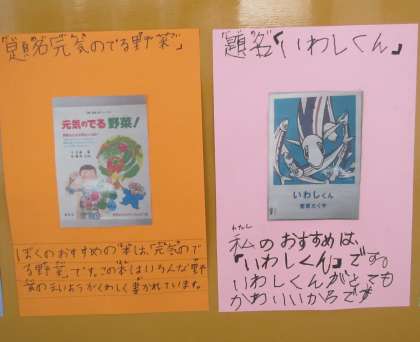 「題名元気のでる野菜」
元気のでる野菜!
ぼくのおすすめの本は、「元気ので
る野菜」です。この本はいろんな野
菜のえいようがくわしく書かれています。
題名「いわしくん」
いわしくん
菅原たくや
わたし
私のおすすめは、
「いわしくん」です。
いわしくんがとても
かわいいからです